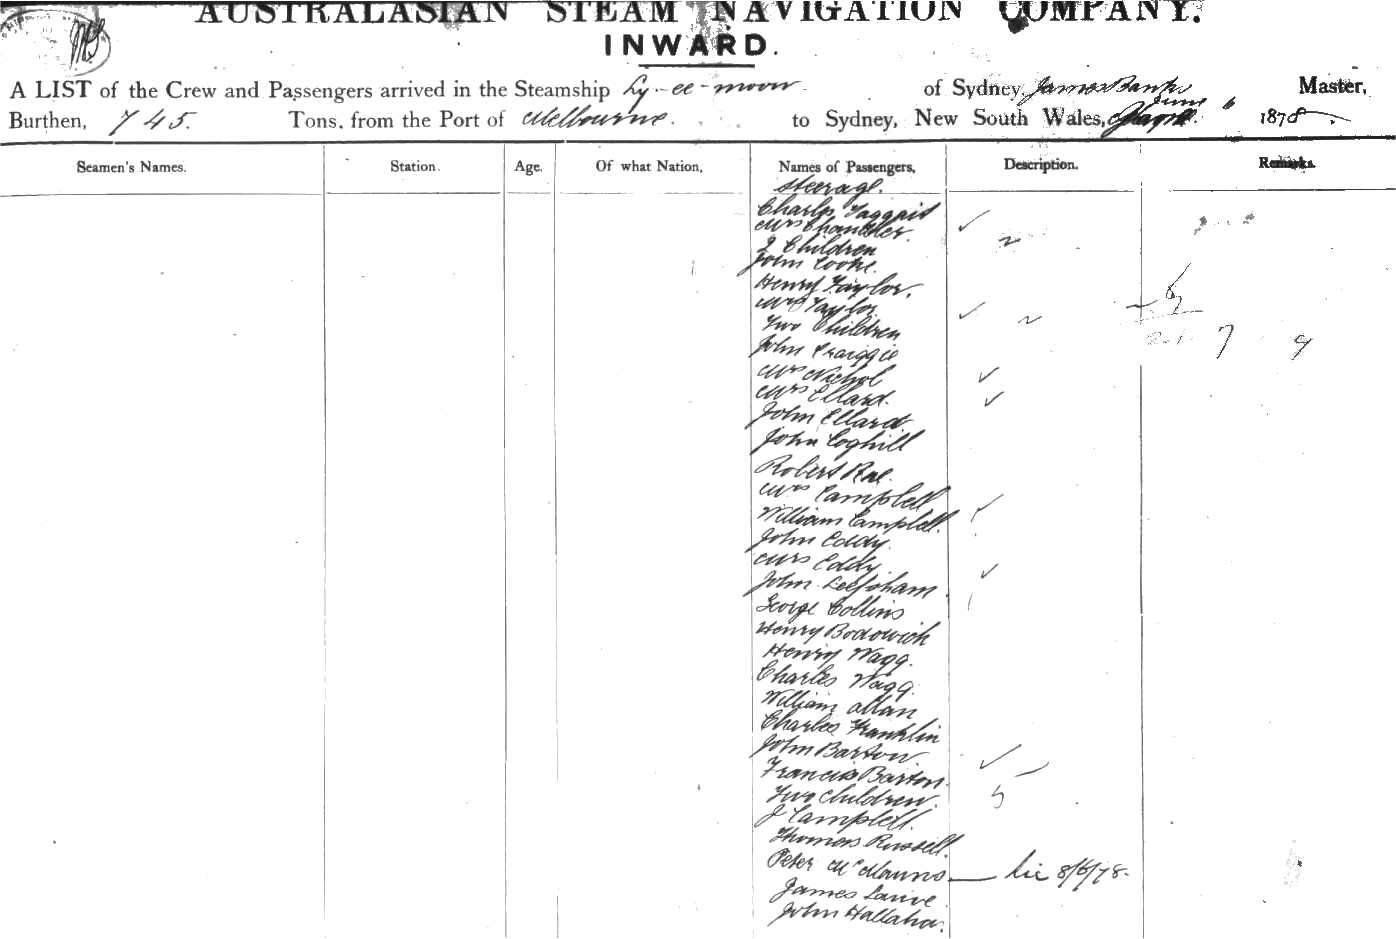 AUSTRALASIAN STEAM NAVIGATION COMPANY.
INWARD.
A LIST of the Crew and Passengers arrived in the Steamship Ly-ee-moon of Sydney, James Banks Master,
Burthen, 745. Tons, from the Port of Melbourne. to Sydney, New South Wales, June 6 1878.
Seamen's Names. Station. Age. Of what Nation, Names of Passengers, Description. Remarks.
Steerage.
Charles Taggart
Mrs Chandler.
2 Children 2
John Cooke.
Henry Taylor.
Mrs Taylor
Two Children 2
John Craiggie 7 9
Mrs Nichol
Mrs Ellard.
John Ellard
John Coghill
Robert Rae.
Mrs Campbell
William Campbell.
John Eddy.
Mrs Eddy
John
George Collins
Henry Bodowich
Henry Wagg.
Charles Wagg.
William Allan
Charles Franklin
John Barton.
Francis Barton.
Two Children.
J Campbell.
Thomas Russell.
Peter McManus 8/6/78.
James
John Hallahan.